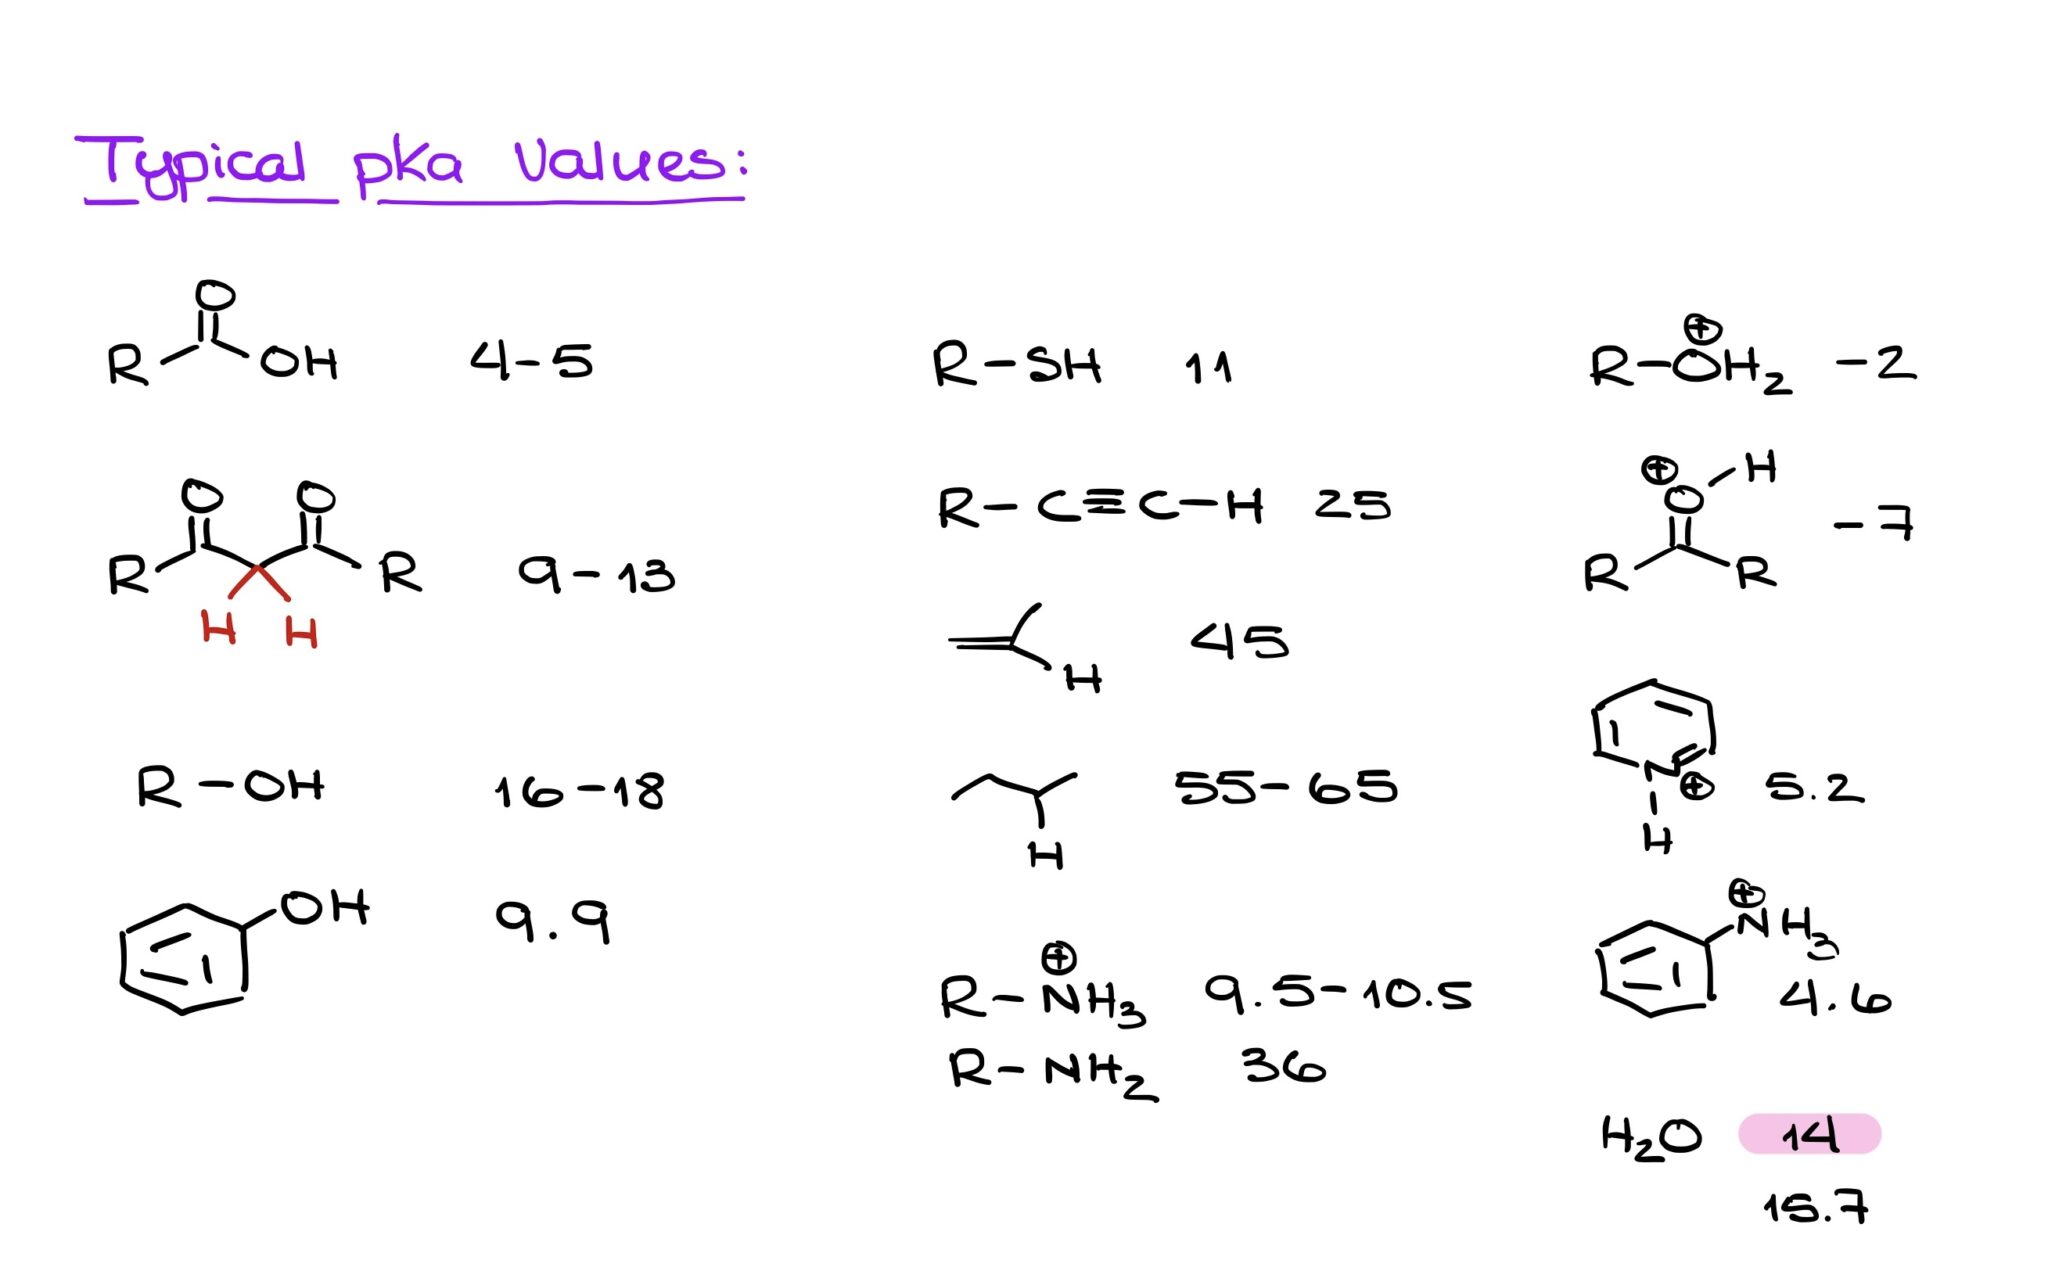 Typical pka Values:
O
R OH 4-5
O O
R R 9-13
H H
R-OH 16-18
OH 9.9
R-SH 11
R-C≡C-H 25
45
H
55-65
H
⊕
R-NH₃ 9.5-10.5
R-NH₂ 36
⊕
R-OH₂ -2
⊕ H
O
-7
R R
N ⊕ 5.2
H
⊕
NH₃
4.6
H₂O 14
15.7